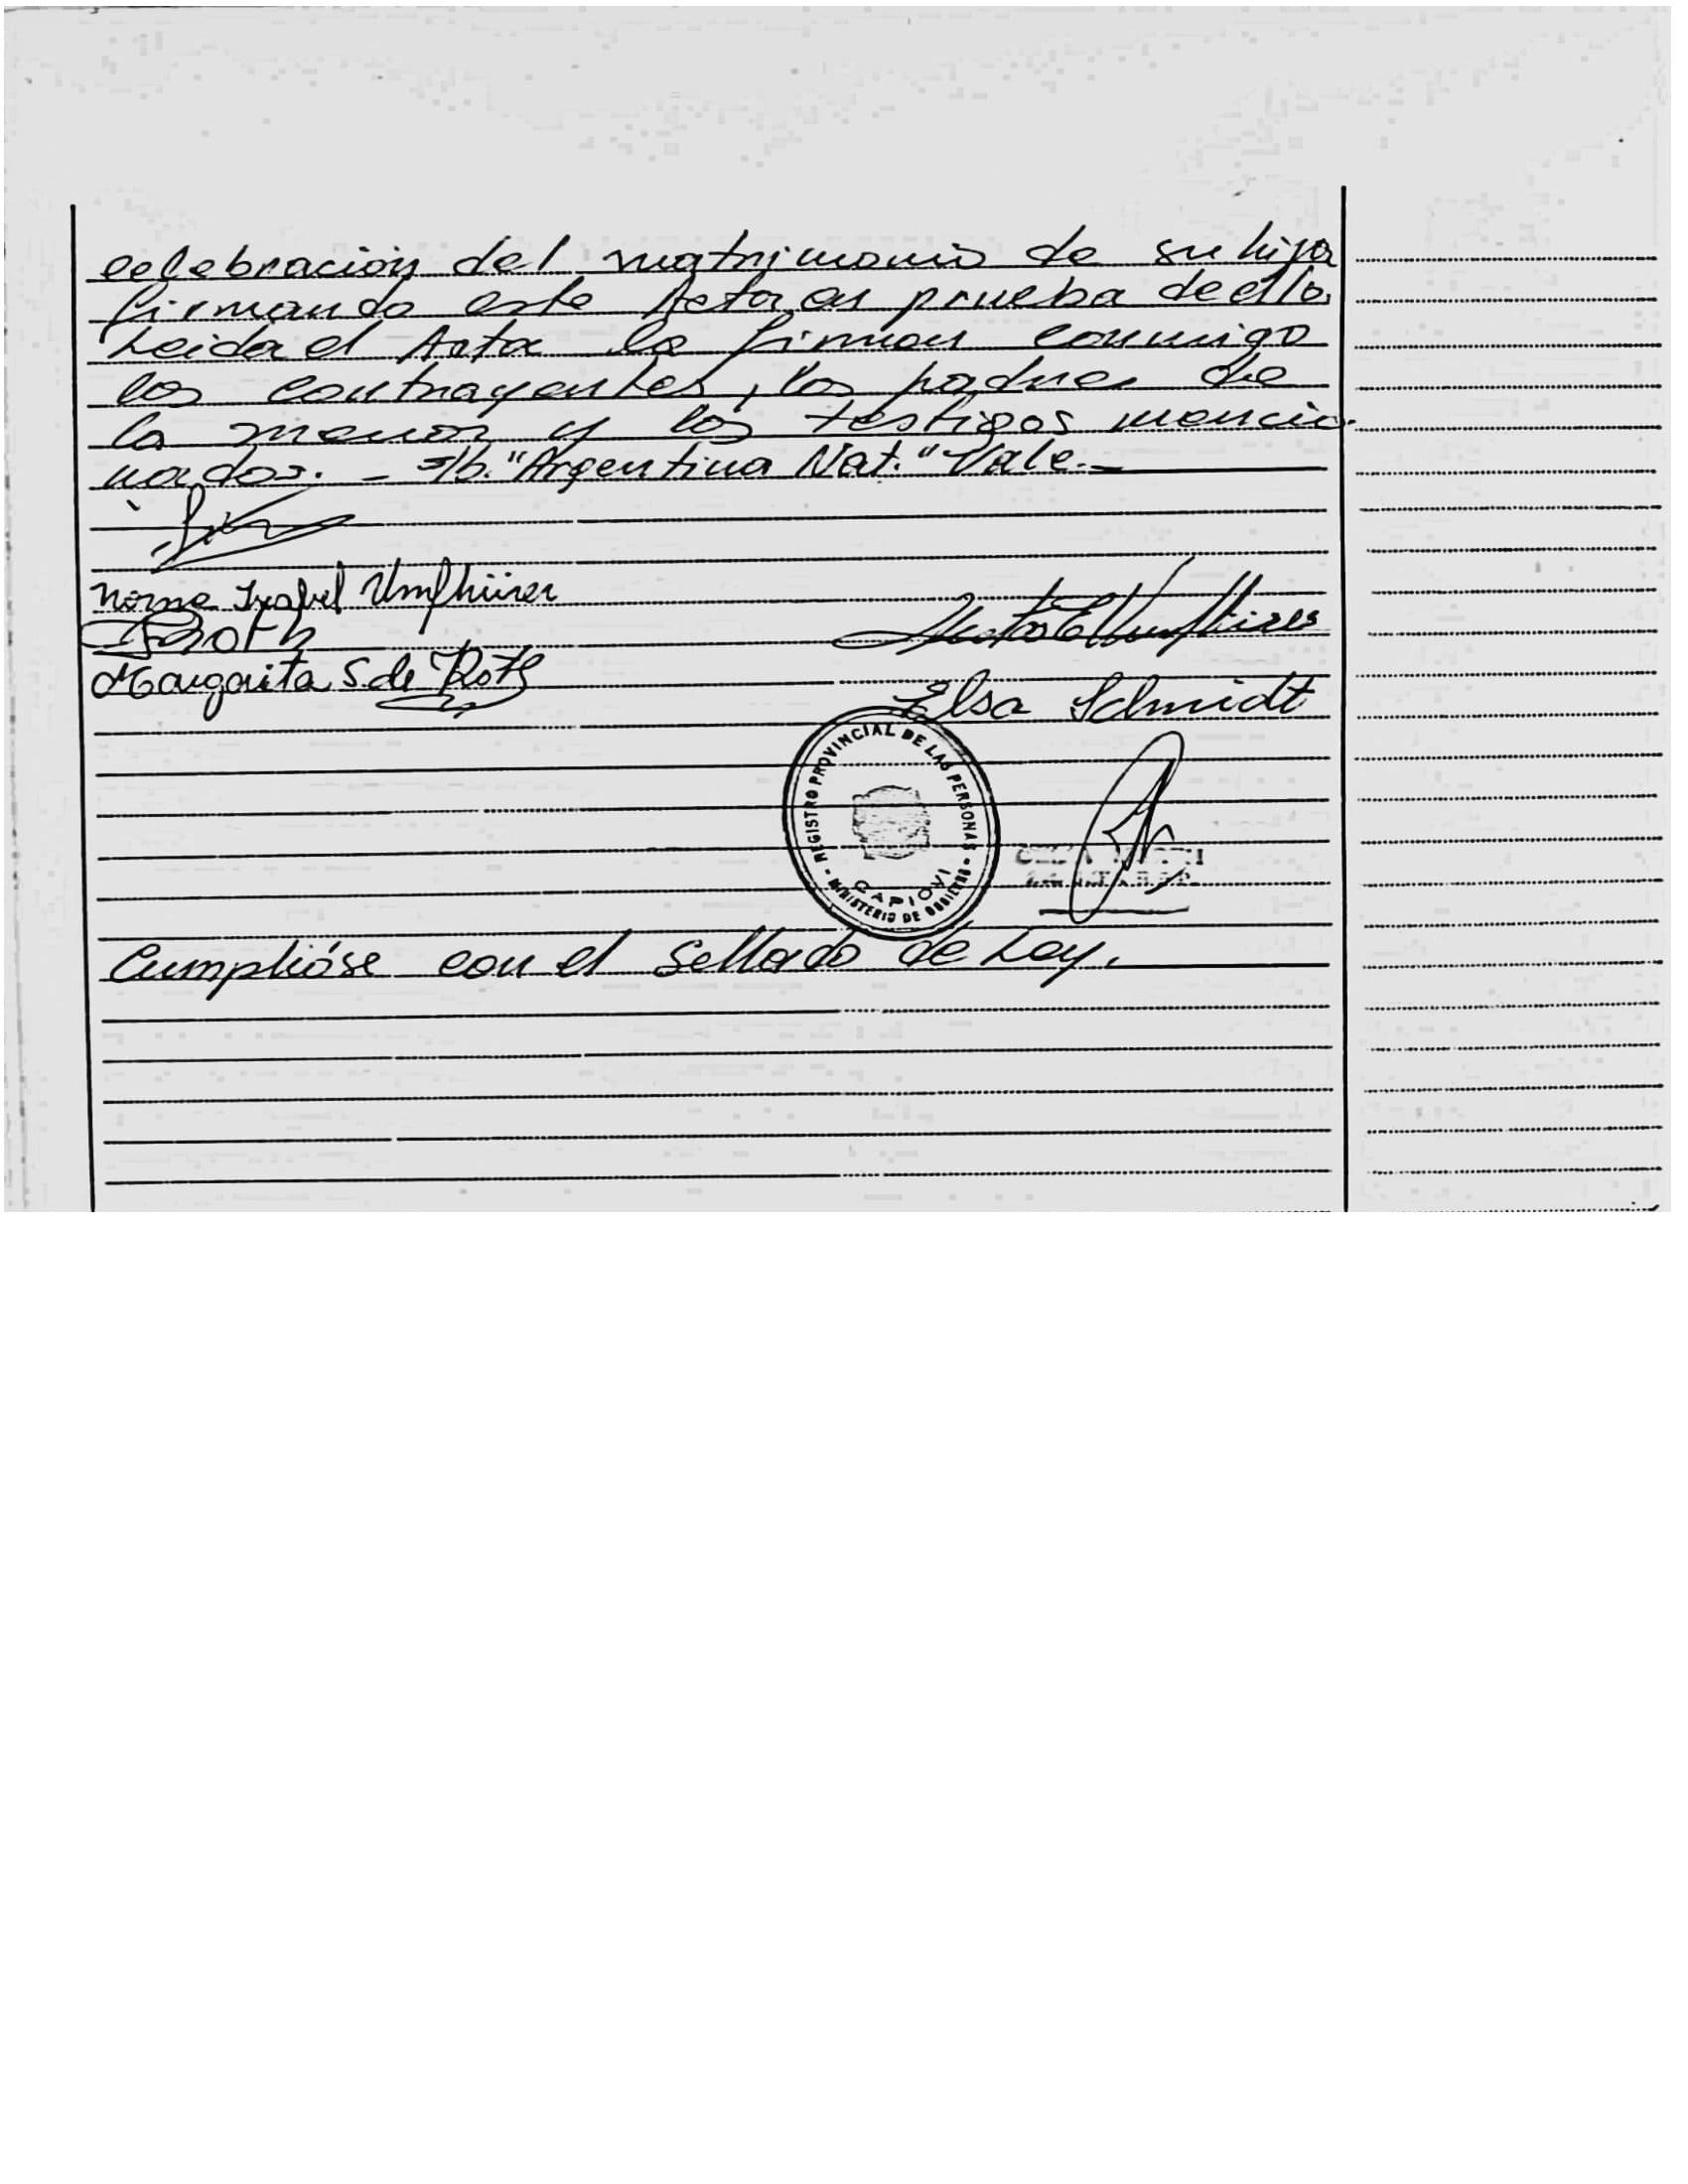 celebración del matrimonio de su hija
firmando este Acta en prueba de ello.
Leida el Acta la firman conmigo
los contrayentes, los padres de
la menor y los testigos mencio-
nados. - s/b. "Argentina Nat." Vale.-
Norma Isabel Umfhürer
Roth
Margarita S. de Roth
Elsa Schmidt
REGISTRO PROVINCIAL DE LAS PERSONAS
CAPIOVI
MINISTERIO DE GOBIERNO
Cumplióse con el Sellado de Ley.